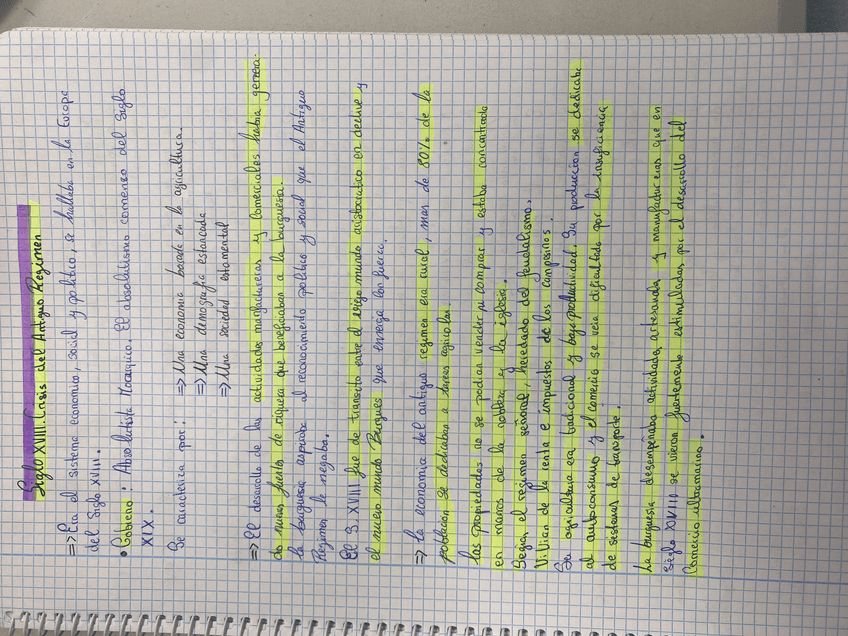 Siglo XVIII. Crisis del Antiguo Régimen
=> Era el sistema economico, social y politico, se hallaba en la Europa
del Siglo XVIII.
• Gobierno: Absolutista Monarquico. El absolutismo comenso del Siglo
XIX.
Se caracteriza por: => Una economia basada en la agricultura.
=> Una demografia estancada
=> Una sociedad estamental
=> El desarrollo de las actividades manufactureras y comerciales habia genera-
do nuevas fuentes de riqueza que beneficiaban a la burguesia.
la burguesia aspiraba al reconocimiento politico y social que el Antiguo
Regimen le negaba.
El S. XVIII fue de transito entre el viejo mundo aristocratico en declive y
el nuevo mundo Burgues que emergia con fuerza.
=> La economia del antiguo regimen era rural, mas de 80% de la
poblacion se dedicaban a tareas agicolas.
las propiedades no se podian vender ni comprar y estaba concentrada
en manos de la nobleza y la iglesia.
Segia, el regimen señorial, heredado del feudalismo.
Vivian de la renta e impuestos de los campesinos.
Su agricultura era tradicional y baja productividad. Su produccion se dedicaba
al autoconsumo y el comercio se veia dificultado por la insuficiencia
de sistemas de transporte.
La burguesia desempeñaba actividades artesanales y manufactureras que en
Siglo XVIII se vieron fuertemente estimuladas por el desarrollo del
Comercio ultramarino.